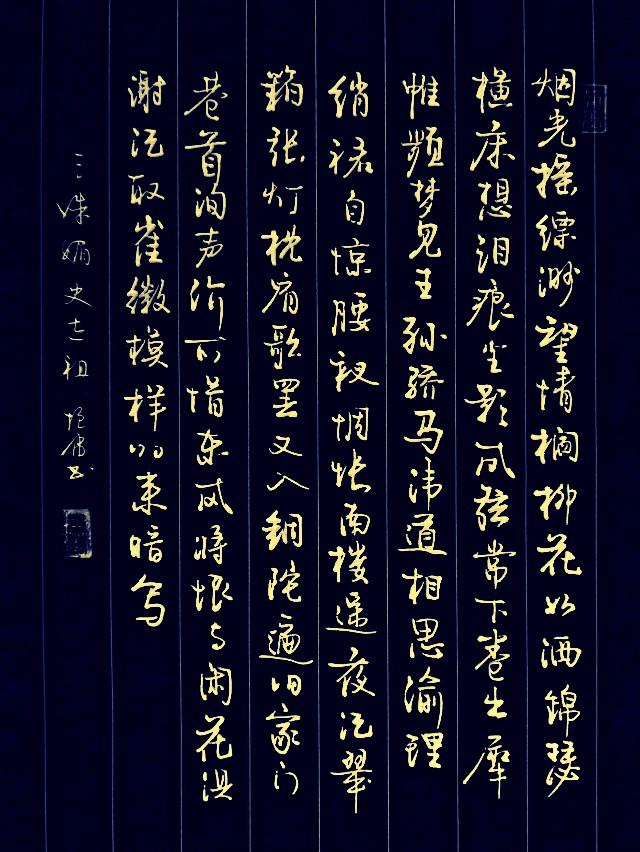 烟光摇缥渺望晴榈柳花如洒锦瑟
横床想泪痕尘影凤弦常下卷出犀
帷频梦见王孙骄马讳道相思偷理
绡裙自惊腰衩惆怅南楼遥夜记翠
箔张灯枕肩歌罢又入铜陀遍旧家门
巷首询声价可惜东风将恨与闲花俱
谢记取崔徽模样归来暗写
三姝媚史达祖 书